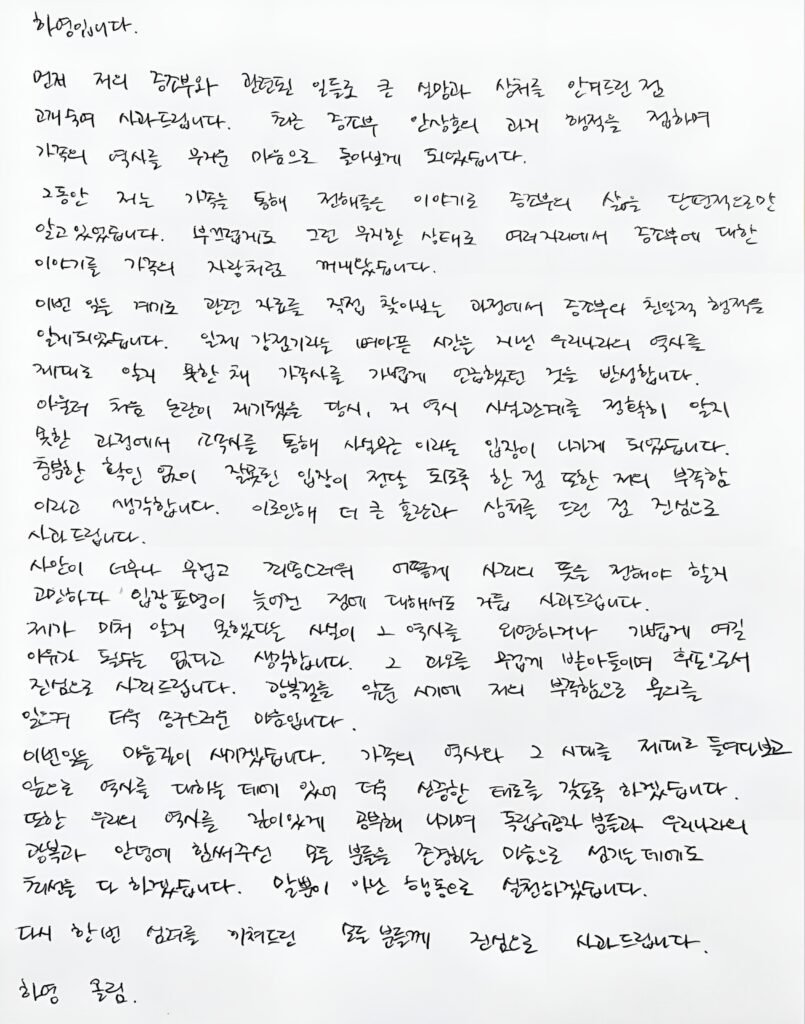 하영입니다.
먼저 저의 증조부와 관련된 일들로 큰 실망과 상처를 안겨드린 점
고개 숙여 사과드립니다. 최근 증조부 안상호의 과거 행적을 접하며
가족의 역사를 무거운 마음으로 돌아보게 되었습니다.
그동안 저는 가족을 통해 전해들은 이야기로 증조부의 삶을 단편적으로만
알고있었습니다. 부끄럽게도 그런 무지한 상태로 여러자리에서 증조부에 대한
이야기를 가족의 자랑처럼 꺼내왔습니다.
이번 일을 계기로 관련 자료를 직접 찾아보는 과정에서 증조부의 친일적 행적을
알게되었습니다. 일제 강점기라는 뼈아픈 시간을 지낸 우리나라의 역사를
제대로 알지 못한 채 가족사를 가볍게 언급했던 것을 반성합니다.
아울러 처음 논란이 제기됐을 당시, 저 역시 사실관계를 정확히 알지
못한 과정에서 소속사를 통해 사실무근이라는 입장이 나가게 되었습니다.
충분한 확인 없이 잘못된 입장이 전달 되도록 한 점 또한 저의 부족함
이라고 생각합니다. 이로인해 더 큰 혼란과 상처를 드린 점 진심으로
사과드립니다.
사안이 너무나 무겁고 죄송스러워 어떻게 사죄의 뜻을 전해야 할지
고민하다 입장표명이 늦어진 점에 대해서도 거듭 사과드립니다.
제가 미처 알지 못했다는 사실이 그 역사를 외면하거나 가볍게 여길
이유가 될수는 없다고 생각합니다. 그 과오를 무겁게 받아들이며 후손으로서
진심으로 사죄드립니다. 광복절을 앞둔 시기에 저의 부족함으로 물의를
일으켜 더욱 송구스러운 마음입니다.
이번일을 마음깊이 새기겠습니다. 가족의 역사와 그 시대를 제대로 들여다보고
앞으로 역사를 대하는 데에 있어 더욱 신중한 태도를 갖도록 하겠습니다.
또한 우리의 역사를 깊이있게 공부해 나가며 독립유공자 분들과 우리나라의
광복과 안녕에 힘써주신 모든 분들을 존경하는 마음으로 섬기는데에도
최선을 다 하겠습니다. 말뿐이 아닌 행동으로 실천하겠습니다.
다시 한번 심려를 끼쳐드린 모든 분들께 진심으로 사과드립니다.
하영 올림.